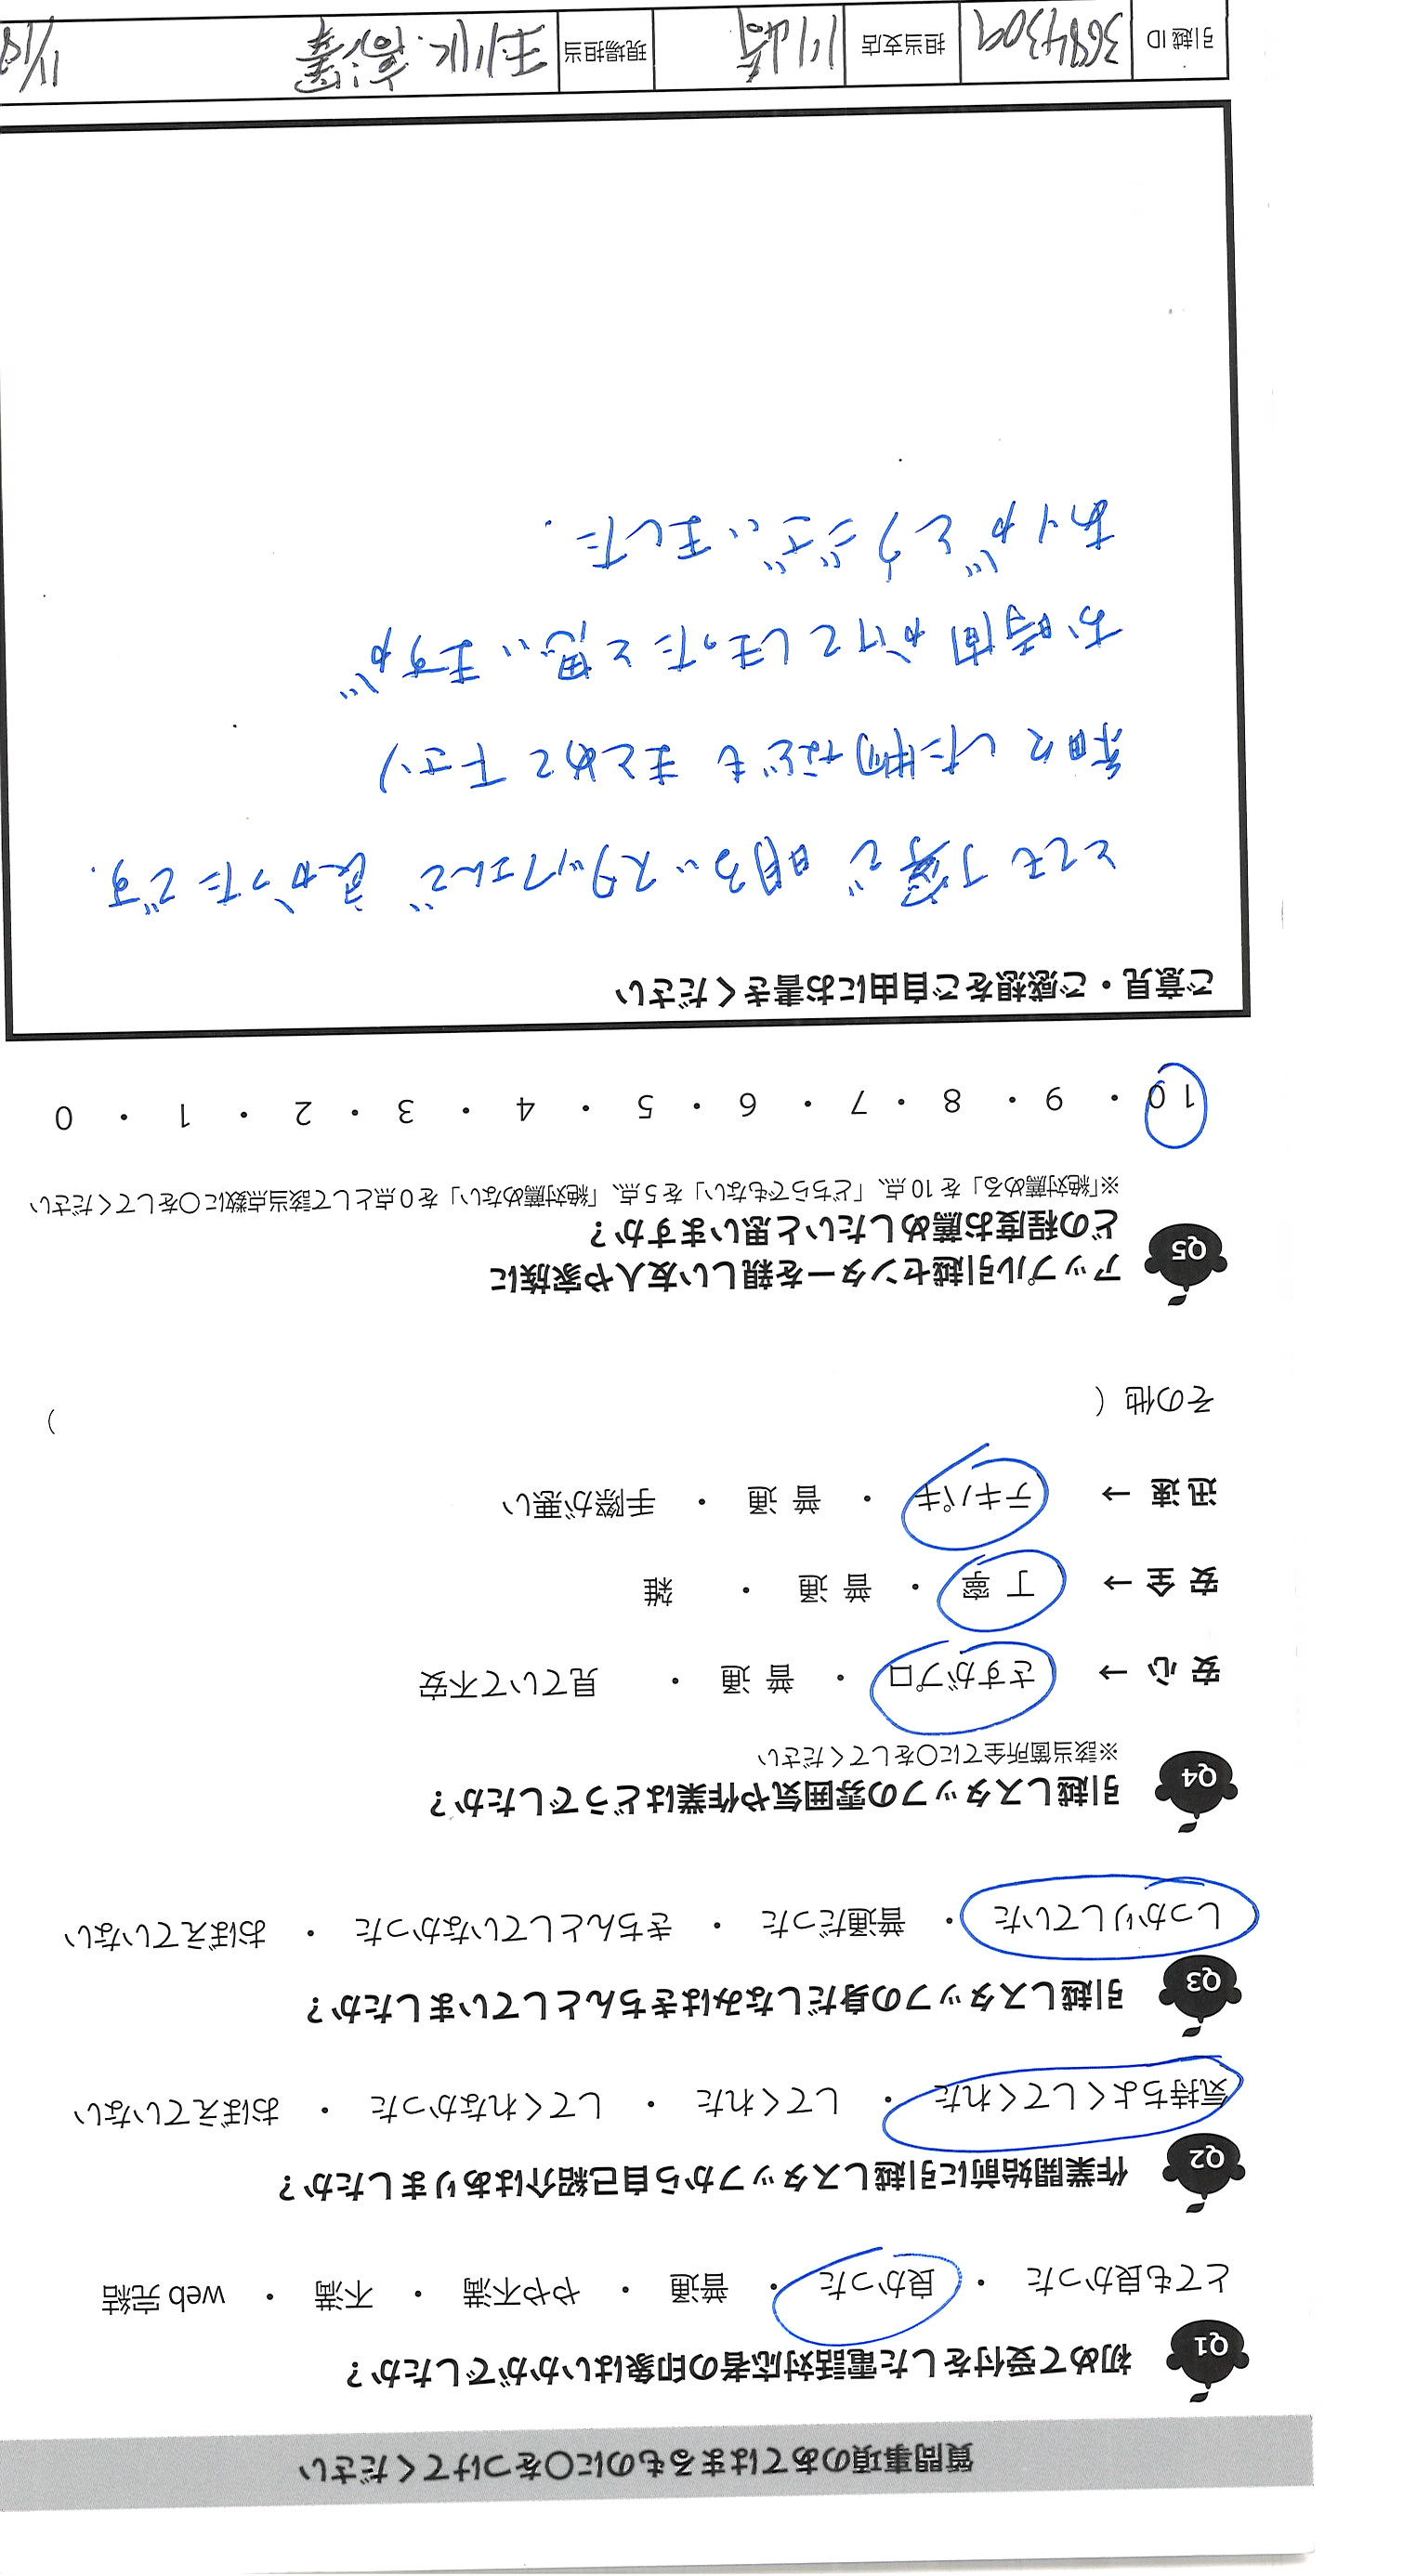 質問事項のあてはまるものに〇をつけてください
Q1 初めて受付をした電話対応者の印象はいかがでしたか？
とても良かった ・ 良かった ・ 普通 ・ やや不満 ・ 不満 ・ web 完結
Q2 作業開始前に引越しスタッフから自己紹介はありましたか？
気持ちよくしてくれた ・ してくれた ・ してくれなかった ・ おぼえていない
Q3 引越しスタッフの身だしなみはきちんとしていましたか？
しっかりしていた ・ 普通だった ・ きちんとしていなかった ・ おぼえていない
Q4 引越しスタッフの雰囲気や作業はどうでしたか？
※該当箇所全てに〇をしてください
安 心 → さすがプロ ・ 普 通 ・ 見ていて不安
安 全 → 丁 寧 ・ 普 通 ・ 雑
迅 速 → テキパキ ・ 普 通 ・ 手際が悪い
その他（ ）
Q5 アップル引越センターを親しい友人や家族に
どの程度お薦めしたいと思いますか？
※「絶対薦める」を 10 点、「どちらでもない」を 5 点、「絶対薦めない」を 0 点として該当点数に〇をしてください
10 ・ 9 ・ 8 ・ 7 ・ 6 ・ 5 ・ 4 ・ 3 ・ 2 ・ 1 ・ 0
ご意見・ご感想をご自由にお書きください
とても丁寧で明るいスタッフさんで良かったです.
した物などもまとめて下さり
お時間かけてしまったと思いますが
ありがとうございました.
引越 ID 3684309 担当支店 川崎 現場担当 11/18